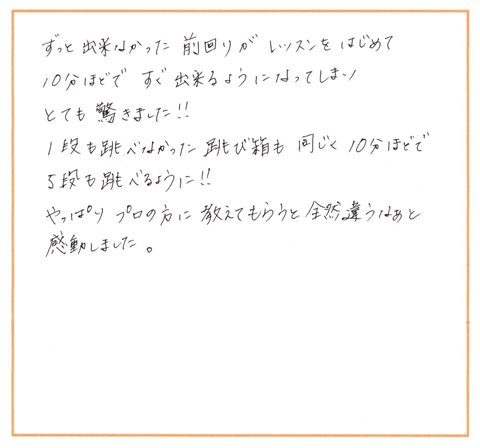 ずっと出来なかった前回りがレッスンをはじめて
10分ほどですぐ出来るようになってしまい
とても驚きました!!
1段も跳べなかった跳び箱も同じく10分ほどで
5段も跳べるように!!
やっぱりプロの方に教えてもらうと全然違うなぁと
感動しました。